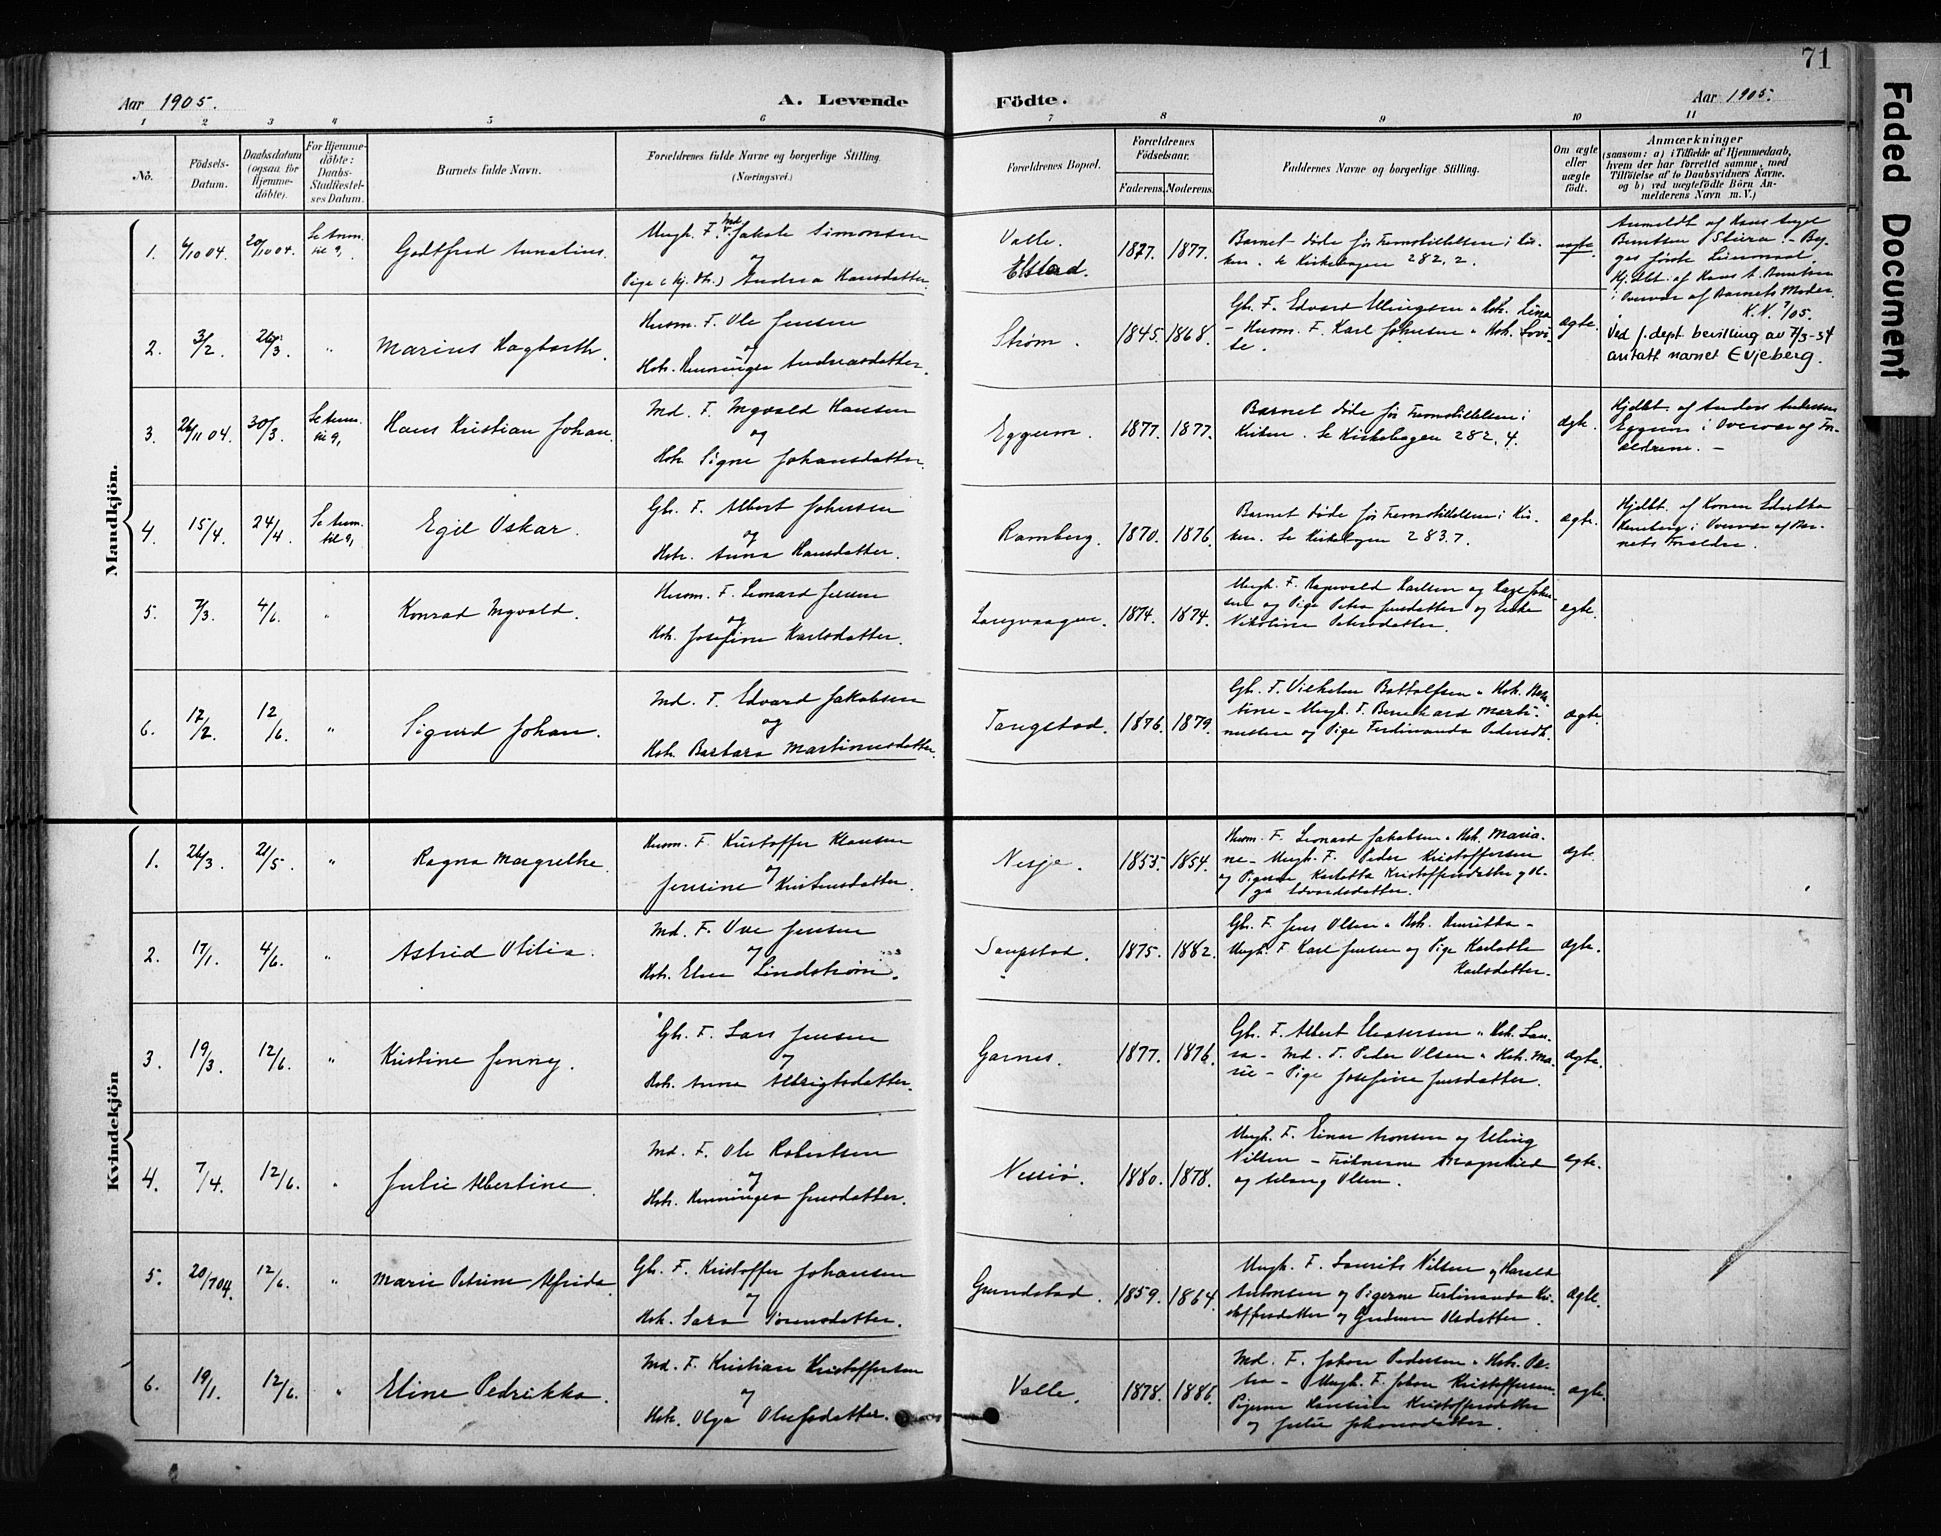 71
Faded Document
Aar 1905.
A. Levende
Födte.
Aar 1905.
1 2 3 4 5 6 7 8 9 10 11
No.
Födsels-
Datum.
Daabsdatum
(ogsaa for
Hjemme-
döbte).
For Hjemme-
döbte:
Daabs-
Stadfæstel-
ses Datum.
Barnets fulde Navn.
Forældrenes fulde Navne og borgerlige Stilling.
(Næringsvei.)
Forældrenes Bopæl.
Forældrenes
Födselsaar.
Faderens. Moderens.
Faddernes Navne og borgerlige Stilling.
Om ægte
eller
uægte
født.
Anmærkninger
(saasom: a) i Tilfælde af Hjemmedaab,
hvem der har forrettet samme, med
Tilföielse af to Daabsvidners Navne,
og b) ved uægtefödte Börn An-
melderens Navn m. V.)
Mandkjön.
1. 6/10 04. 20/10 04. Se Anm. til 9, Godtfred Annelius.
Ungk. F. Jakob Simonsen
og
Pige Andrea Hansdatter.
Valle.
Elstad.
1877. 1877.
Barnet døde før Fremstillelsen i Kir-
ken. Se Kirkebogen 282, 2.
uægte.
Anmeldt af Hans Angel
Berntsen Steira. - Beg-
ges første Leiermaal.
Hj.dbt. af Hans A. Berntsen
i Overvær af Barnets Moder.
K.K. 7/05.
2. 3/2 26/3. " Marius Hagbarth.
Husm. F. Ole Jensen
og
Hstr. Henninga Andreasdatter.
Strøm. 1845. 1868.
Gb. F. Edvard Ellingsen " Hstr. Lina
- Husm. F. Karl Johnsen " Hstr. Lovi-
se.
ægte.
Ved J.dept. bevilling av 7/3-34
antatt navnet Evjeberg.
3. 26/11 04. 30/3. Se Anm. til 9, Hans Kristian Johan.
Md. F. Ingvald Hansen
og
Hstr. Signe Johansdatter.
Eggum. 1877. 1877.
Barnet døde før Fremstillelsen i
Kirken. Se Kirkebogen 282, 4.
ægte.
Hjdbt. af Anders Andersen
Eggum i Overvær af For-
ældrene. -
4. 15/4. 24/4. Se Anm. til 9, Egil Oskar.
Gb. F. Albert Johnsen
og
Hstr. Anna Hansdatter.
Ramberg. 1870. 1876.
Barnet døde før Fremstillelsen i Kir-
ken. Se Kirkebogen 283.7.
ægte.
Hjdbt. af Konen
Ramberg i Overvær af Bar-
nets Forældre.
5. 7/3. 4/6. " Konrad Ingvald.
Husm. F. Leonard Jensen
og
Hstr. Josefine Karlsdatter.
Langvaagen. 1874. 1874.
Ungk. F. Ragnvald Karlsen og Hage John-
sen og Pige Petra Jensdatter og Enke
Nikoline Petersdatter.
ægte
6. 12/2. 12/6. " Sigurd Johan.
Md. F. Edvard Jakobsen
og
Hstr. Barbara Martinusdatter.
Tangstad. 1876. 1879.
Gb. F. Vilhelm Bottolfsen " Hstr.
tine - Ungk. F. Bernhard Marti-
nussen og Pige Ferdinanda Pedersdt.
ægte.
Kvindekjön
1. 26/3. 21/5. " Ragna Margrethe.
Husm. F. Kristoffer Klausen
og
Jensine Kristensdatter.
Nesje. 1853. 1854.
Husm. F. Leonard Jakobsen " Hstr. Maria-
ne - Ungk. F. Peder Kristoffersen
og Pigerne Karlotta Kristoffersdatter og Ol-
ga Edvardsdatter.
ægte.
2. 17/1. 4/6. " Astrid Otilia.
Md. F. Ove Jensen
og
Hstr. Elna Lindstrøm.
Saupstad. 1875. 1882.
Gb. F. Jens Olsen " Hstr. Henrikka -
Ungk. F. Karl Jensen og Pige Karlotte
Karlsdatter.
ægte.
3. 19/3. 12/6. " Kristine Jenny.
Gb. F. Lars Jensen
og
Hstr. Anna Albrigtsdatter.
Garnes. 1877. 1876.
Gb. F. Albert Andersen " Hstr. Lau-
ra - Md. F. Peder Olsen " Hstr. Ma-
rie - Pige Josefine Jensdatter.
ægte.
4. 7/4. 12/6. " Julie Albertine.
Md. F. Ole Robertsen
og
Hstr. Henninga Jensdatter.
Nessiø. 1880. 1878.
Ungk. F. Einar Aronsen og Elling
Nilsen - Frøknerne Magnhild
og Olsen.
ægte.
5. 20/7 04. 12/6. " Marie Petrine Alfrida.
Gb. F. Kristoffer Johansen
og
Hstr. Sara Sørensdatter.
Grundstad. 1859. 1864.
Ungk. F. Laurits Nilsen og Harald
Antonsen og Pigerne Ferdinanda Kri-
stoffersdatter og Gudrun Olsdatter.
ægte.
6. 19/1. 12/6. " Eline Pedrikka.
Md. F. Kristian Kristoffersen
og
Hstr. Olga Olufsdatter.
Valle. 1878. 1886.
Md. F. Johan Pedersen " Hstr. Pe-
tra - Ungk. F. Johan Kristoffersen.
Pigerne Hansine Kristoffersdatter
og Julie Johansdatter.
ægte.